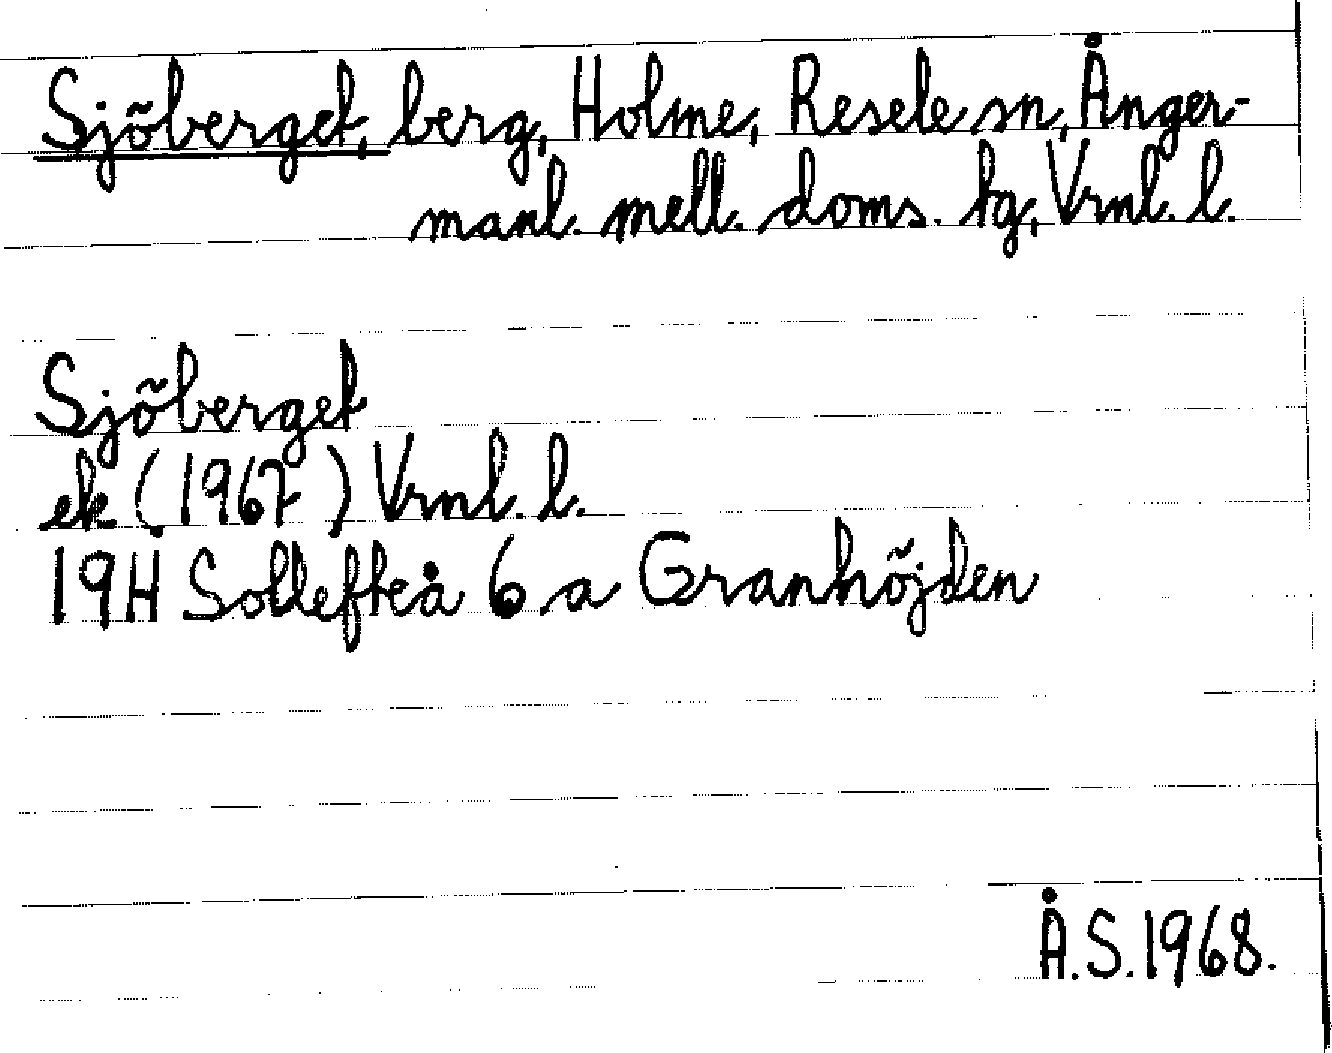 Sjöberget, berg, Holme, Resele sn, Ånger-
manl. mell. doms. tg, Vrnl. l.
Sjöberget
ek (1967) Vrnl. l.
19H Sollefteå 6 a Granhöjden
Å.S. 1968.